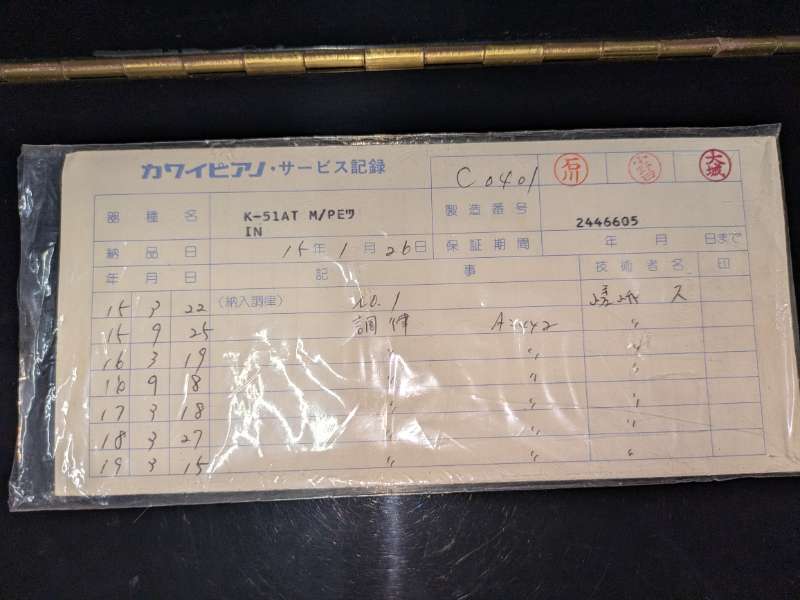 カワイピアノ・サービス記録
C0401 石川 大城
器種名 K-51AT M/PEワ 製造番号 2446605
IN
納品日 15年1月26日 保証期間 年 月 日まで
年 月 日 記 事 技術者名 印
15 3 22 (納入調律) no.1
15 9 25 調律 A=442 〃
16 3 19 〃 〃 〃
16 9 8 〃 〃 〃
17 3 18 〃 〃 〃
18 3 27 〃 〃 〃
19 3 15 〃 〃 〃